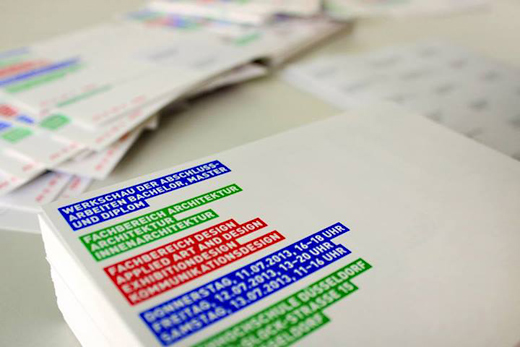 WERKSCHAU DER ABSCHLUSS-
ARBEITEN BACHELOR, MASTER
UND DIPLOM
FACHBEREICH ARCHITEKTUR
ARCHITEKTUR
INNENARCHITEKTUR
FACHBEREICH DESIGN
APPLIED ART AND DESIGN
EXHIBITIONDESIGN
KOMMUNIKATIONSDESIGN
DONNERSTAG, 11.07.2013, 16–18 UHR
FREITAG, 12.07.2013, 13–20 UHR
SAMSTAG, 13.07.2013, 11–16 UHR
HOCHSCHULE DÜSSELDORF
-STRASSE 15